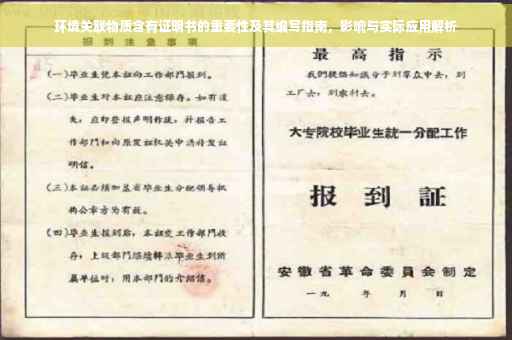 环境关联物质含有证明书的重要性及其编写指南，影响与实际应用解析
报到注意事项
(一)毕业生凭本证向工作部门报到。
(二)毕业生对本证应注意保存。如有遗
失，应即登报声明作废，并报告工
作部门和向原发证机关申请补发证
明信。
(三)本证必须加盖省毕业生分配领导机
构公章方为有效。
(四)毕业生报到后，本证交工作部门收
存；上级部门继续转派毕业生到所
属单位时，用本部门的介绍信。
最高指示
我们提倡知识分子到群众中去，到
工厂去，到农村去。
大专院校毕业生统一分配工作
报到证
安徽省革命委员会制定
一九 年 月 日